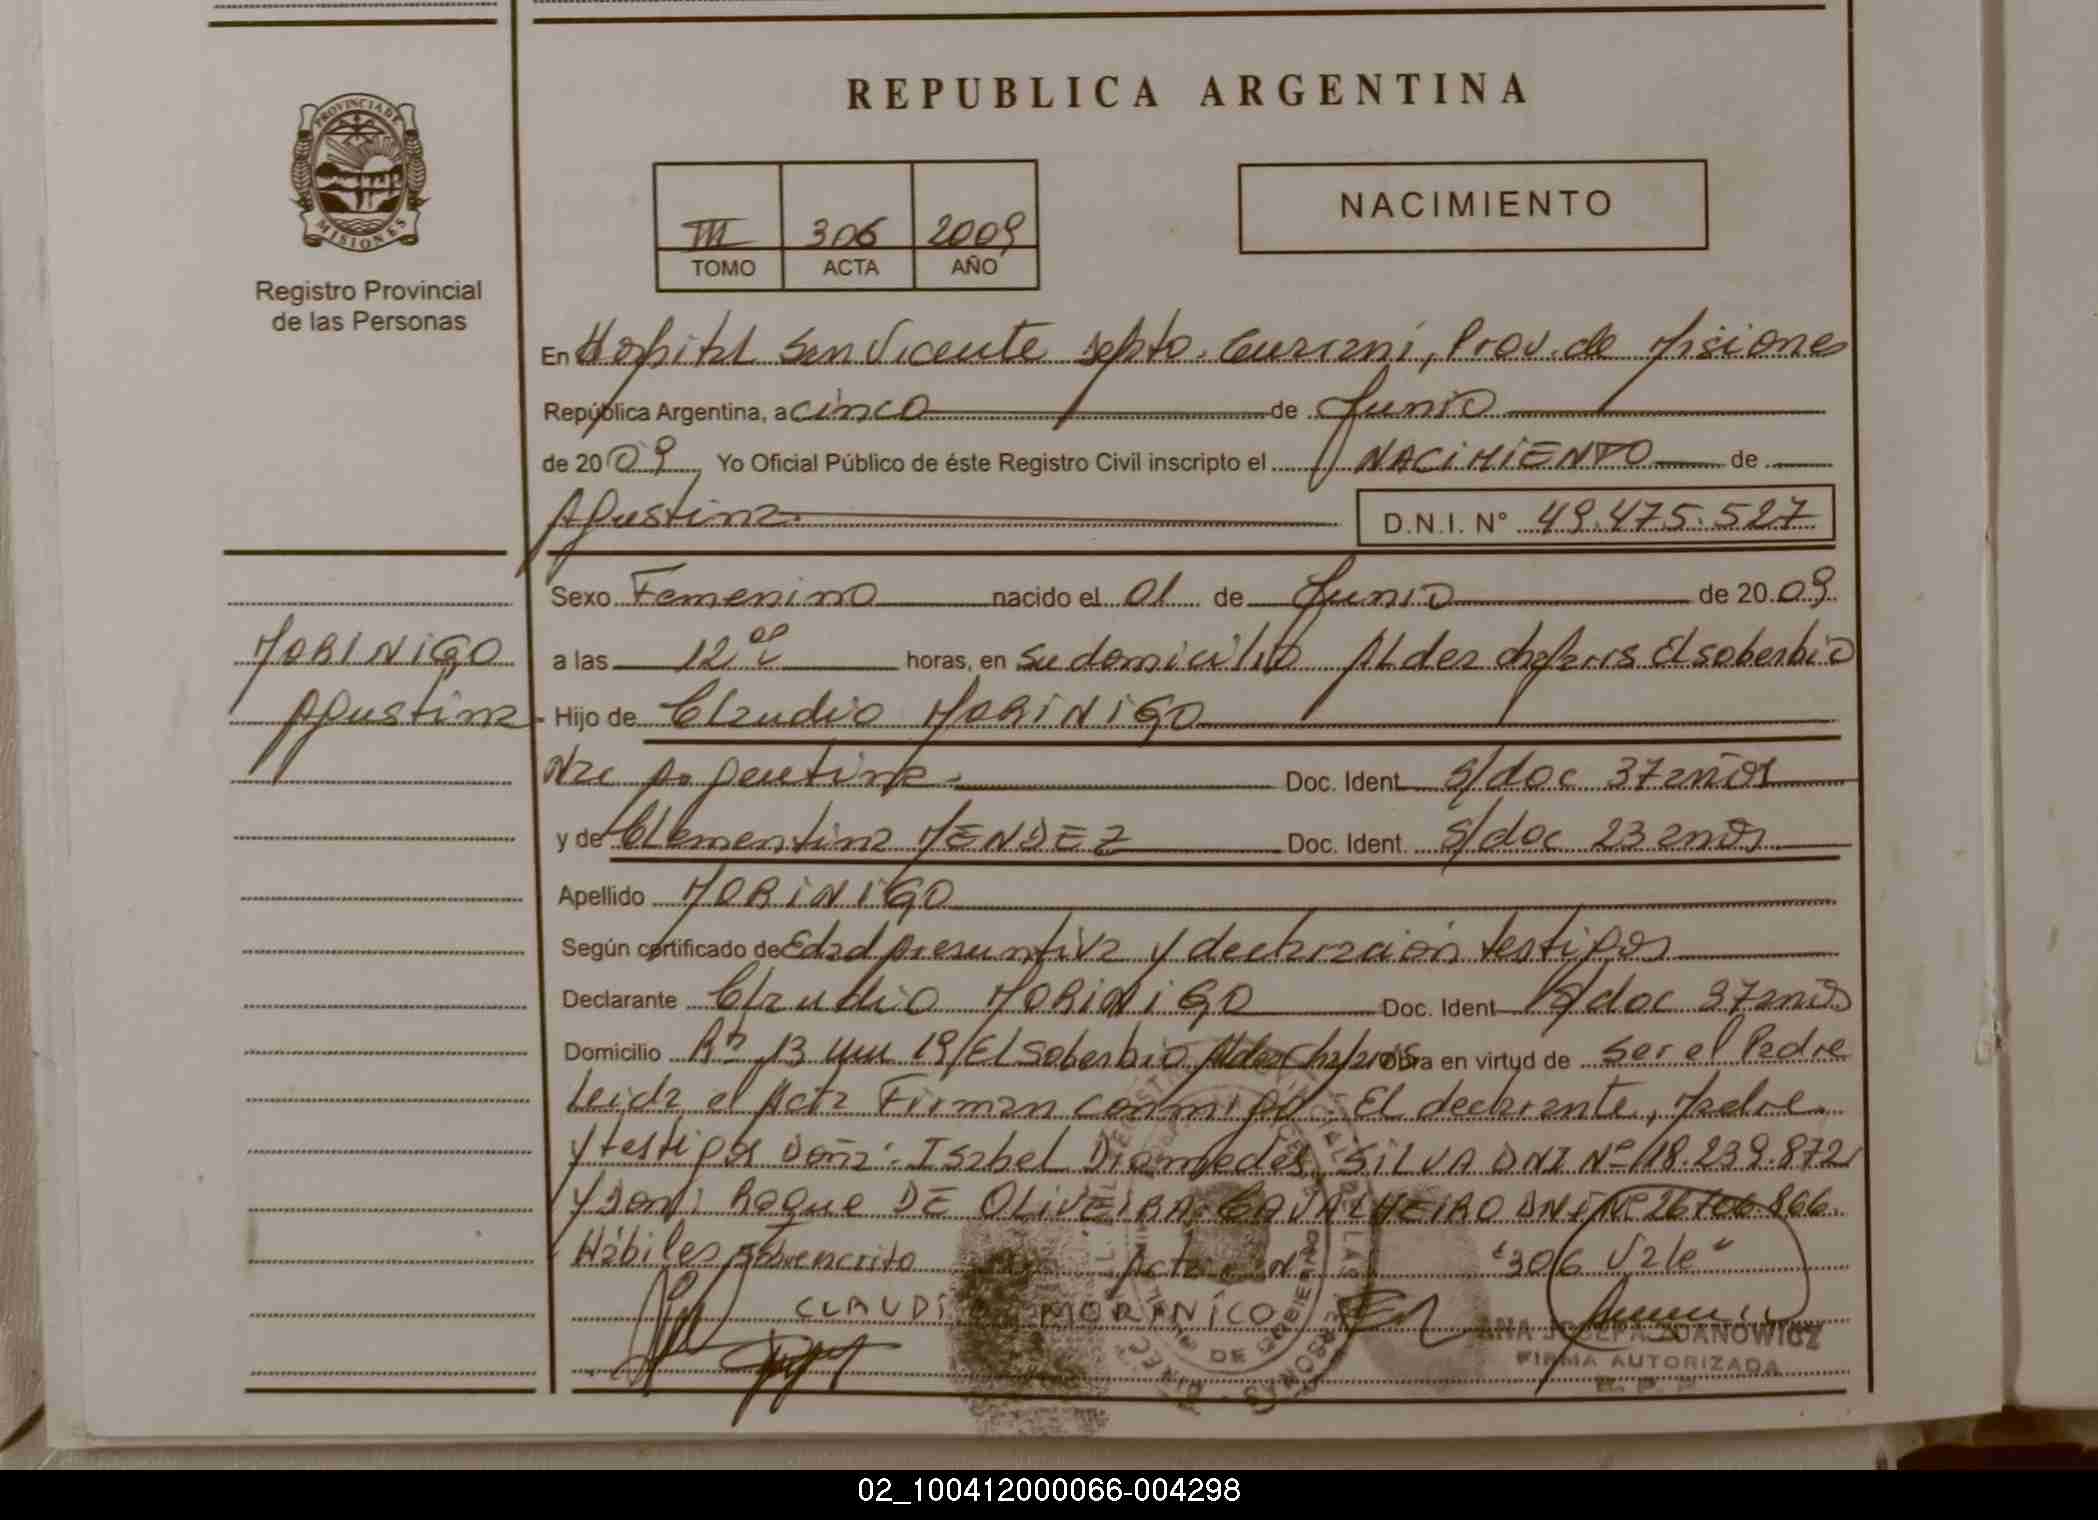 REPUBLICA ARGENTINA
PROVINCIA DE
MISIONES
Registro Provincial
de las Personas
III 306 2009
TOMO ACTA AÑO
NACIMIENTO
En Hospital San Vicente Depto. Guarani, Prov. de Misiones
República Argentina, a cinco de Junio
de 2009 Yo Oficial Público de éste Registro Civil inscripto el NACIMIENTO de
Agustina.
D.N.I. N° 49.475.527
Sexo Femenino nacido el 01 de Junio de 2009
a las 12 horas, en su domicilio Aldea El soberbio
MORINIGO
Agustina
Hijo de Claudio MORINIGO
Nac Argentina. Doc. Ident. S/doc 37 años
y de Clementina MENDEZ Doc. Ident. S/doc 23 años
Apellido MORINIGO
Según certificado de Edad presuntiva y declaración testigos
Declarante Claudio MORINIGO Doc. Ident S/doc 37 años
Domicilio 13 19 El Soberbio Aldea obra en virtud de ser el Padre
Leida el Acta Firman conmigo El declarante, Madre
y testigos Doña: Isabel Diamedes SILVA DNI Nº 18.239.872
y Don: Roque DE OLIVEIRA CAVALHEIRO DNI Nº 26.106.866
Hábiles, sobrescrito Acta N "306 Vale"
CLAUDI MORINICO
ANA JOSEFA ZDANOWICZ
FIRMA AUTORIZADA
02_100412000066-004298